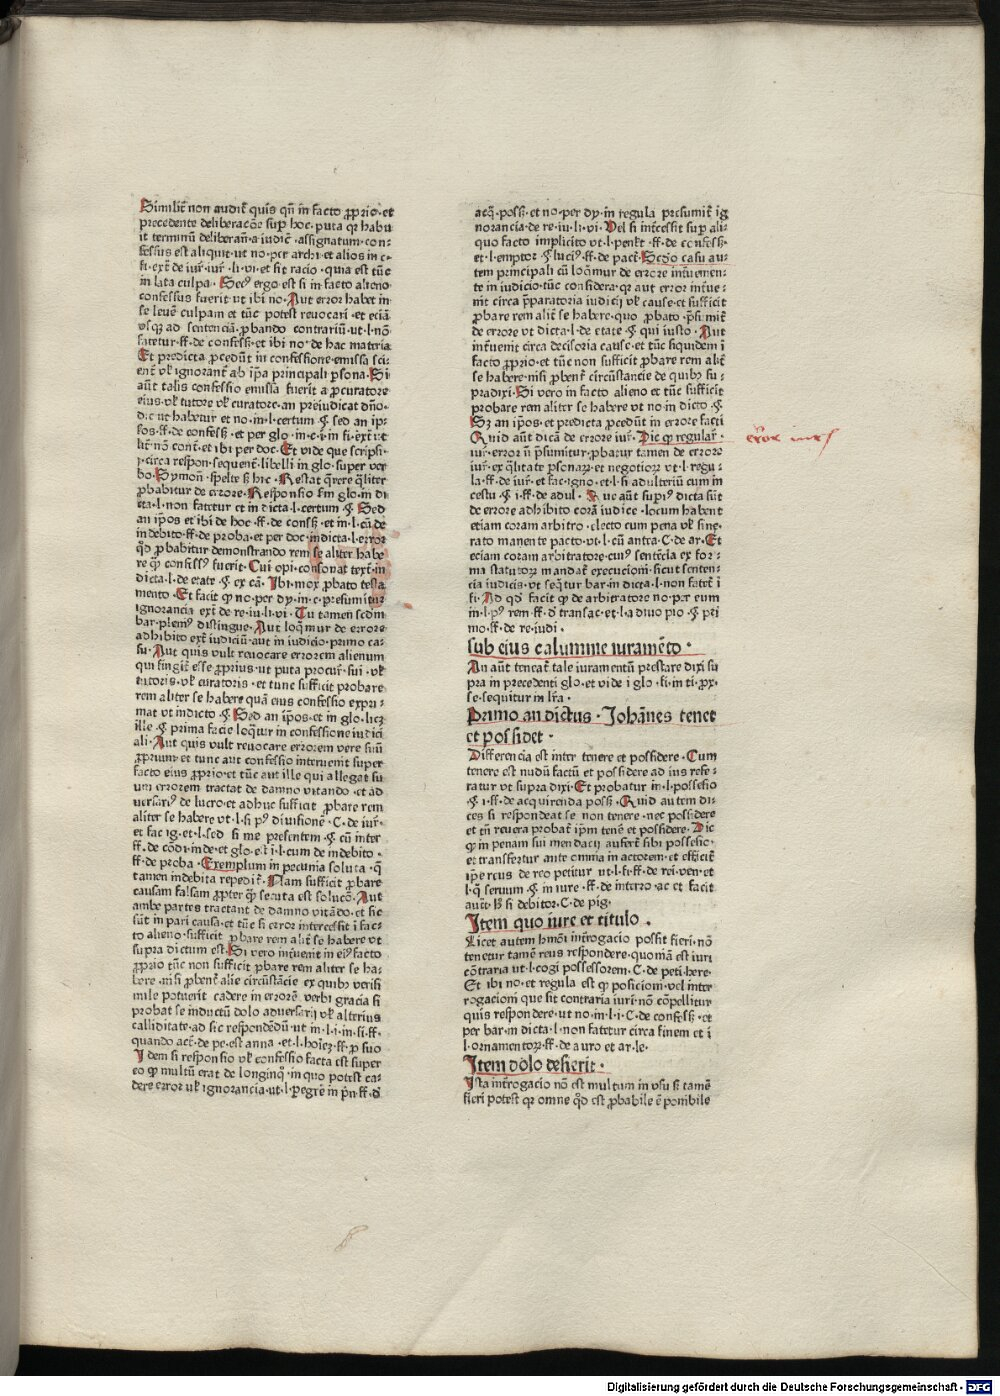 Similit̄ non audit̄ quis qn̄ in facto ꝓprio·et
precedente deliberacōe suꝑ hoc·puta qꝛ habu
it terminū deliberan̄·a iudic̄·assignatum·con-
fessus est aliquit·ut no·per archi·et alios in c·
fi·ext̄·de iur̄·iur̄·li·vi·et sit racio·quia est tūc
in lata culpa· Secꝰ ergo est si in facto alieno
confessus fuerit ut ibi no· Aut error habet in
se leuē culpam et tūc potest reuocari·et eciā
vsqꝫ ad sentenciā·ꝓbando contrariū·ut·l·nō
fatetur·ff·de confess̄·et ibi no·de hac materia
Et predicta ꝓcedūt in confessione·emissa sci-
ent̄ vł ignorant̄ ab ip̄a principali ꝑsona·Si
aūt talis confessio emissa fuerit a ꝓcuratore
eius·vł tutore vł curatore·an preiudicat dn̄o·
dic ut habetur et no·in·l·certum ꝯ sed an ip-
sos·ff·de confess̄·et per glo·in·c·i·in fi·ext̄·ut
lit̄·nō cont̄·et ibi per doc·Et vide que scripsi·
j·circa respon·sequent̄·libelli in glo·super ver
bo·Symon̄·spelte ꝯ hic· Restat q̄rere q̄liter
ꝓbabitur de errore· Responsio s̄m glo·in di
cta·l·non fatetur et in dicta·l·certum ꝯ Sed
an ip̄os et ibi de hoc·ff·de consss̄·et in·l·cū de
indebito·ff·de proba·et per doc·indicta·l·error
qd̄ ꝓbabitur demonstrando rem se aliter habe
re qꝫ confessꝰ fuerit· Cui opi·consonat text̄·in
dicta·l·de etate·ꝯ ex cā· Ibi·mox ꝓbato testa
mento· Et facit qꝫ no·per dy·in·c·presumitur
ignorancia ext̄·de re·iu·li·vi· Tu tamen scdm
bar·plemꝰ distingue· Aut loqꝫmur de errore
adhibito ext̄ iudiciū·aut in iudicio·primo ca-
su· Aut quis vult reuocare errorem alienum
qui fingit̄ esse ꝓprius·ut puta procur̄·sui·vł
tutoris·vł curatoris·et tunc sufficit probare
rem aliter se habere quā eius confessio expri-
mat ut indicto·ꝯ Sed an ip̄os·et in glo·licꝫ
ille·ꝯ prima facie loqꝫur in confessione iudici
ali· Aut quis vult reuocare errorem vere suū
ꝓprium·et tunc aut confessio interuenit super
facto eius ꝓprio·et tūc aut ille qui allegat su
um errorem tractat de damno vitando·et ad
uersariꝰ de lucro·et adhuc sufficit ꝓbare rem
aliter se habere vt·l·si pꝰ diuisionē·C·de iur̄·
et fac·ig·et·l·sed si me presentem·ꝯ cū inter
ff·de cōdi·inde·et glo·et·ī·l·cum de indebito·
ff·de proba·Exemplum in pecunia soluta·q̄
tamen indebita repedit̄· Nam sufficit ꝓbare
causam falsam ꝓpter qꝫ secuta est solucō· Aut
ambe partes tractant de damno vitādo·et sic
sūt in pari causa·et tūc si error intercessit ī fac-
to alieno·sufficit ꝓbare rem alit̄ se habere vt
supra dictum est· Si vero int̄uenit in eiꝰ facto
ꝓprio tūc non sufficit ꝓbare rem aliter se ha-
bere·nisi ꝓbent̄ alie circūstācie ex quibꝰ verisi
mile potuerit cadere in errorē·verbi gracia si
probat se inductū dolo aduersarij vł alterius
calliditate·ad sic respondēdū·ut in·l·i·in·fi·ff·
quando act̄·de pe·est anna·et·l·hoīez·ff·ꝓ suo
Idem si responsio vł confessio facta est super
eo qꝫ multū erat de longinqꝫ·in quo potest ca-
dere error vł ignorancia·ut·l·ꝑegre in pn̄·ff·d̄
acq̄·poss̄·et no·per dy·in regula presumit̄ ig
norancia·de re·iu·li·vi· Vel si int̄cessit suꝑ ali-
quo facto implicito vt·l·penłt·ff·de confess̄·
et·l·emptor·ꝯ luciꝰ·ff·de pact̄·Scd̄o casu au-
tem principali cū loqꝫmur de errore int̄uenien-
te in iudicio·tūc considera·qꝛ aut error int̄ue-
nit circa p̄paratoria iudicij vł cause·et sufficit
ꝓbare rem alit̄ se habere·quo ꝓbato·p̄sūmit̄
de errore vt dicta·l·de etate·ꝯ qui iusto· Aut
int̄uenit circa decisoria cause·et tūc siquidem ī
facto ꝓprio·et tūc non sufficit ꝓbare rem alit̄
se habere·nisi ꝓbent̄ circūstancie de quibꝰ su-
pradixi· Si vero in facto alieno et tūc sufficit
probare rem aliter se habere vt no in dicto·ꝯ
Sꝫ an ip̄os·et predicta ꝓcedūt in errore facti
Quid aūt dicā de errore iur̄· Dic qꝫ regular̄·
iur̄·error n̄ p̄sumitur·ꝓbatur tamen de errore
iur̄·ex q̄litate ꝑsonaꝝ·et negotioꝝ vt·l·regu-
la·ff·de iur̄·et fac·igno·et·l·si adulteriū cum in
cestu·ꝯ i·ff·de adul· Que aūt supiꝰ dicta sūt
de errore adhibito corā iudice·locum habent
etiam coram arbitro·electo cum pena vł sine·
rato manente pacto·vt·l·cū antra·C·de ar· Et
eciam coram arbitratore·cuiꝰ sentēcia ex for-
ma statutoꝝ mandat̄ execucioni·sicut senten-
cia iudicis·vt seqꝫtur bar·in dicta·l·non fatet̄ ī
fi· Ad qd̄ facit qꝫ de arbitratore no·per eum
in·l·pꝰ rem·ff·d̄ transac·et·l·a diuo pio·ꝯ pri
mo·ff·de·re·iudi·
sub eius calumnie iuramēto·
An aūt teneat̄ tale iuramentū prestare dixi su
pra in precedenti glo·et vide ī glo·fi·in ti·ꝓx·
se·sequitur in lr̄a·
Primo an dictus·Johānes tenet
et possidet·
Differencia est inter tenere et possidere·Cum
tenere est nudū factū et possidere ad ius refe-
ratur vt supra dixi· Et probatur in·l·possesio
ꝯ i·ff·de acquirenda poss̄· Quid autem di-
ces si respondeat se non tenere·nec possidere
et tn̄ reuera probat̄ ip̄m tenē·et possidere· Dic
qꝫ in penam sui mendacij aufert̄ sibi possesio·
et transfertur ante omnia in actorem·et efficit̄
ip̄e reus de reo petitur ut·l·fi·ff·de rei·ven·et
l·q̄ seruum·ꝯ in iure·ff·de interro·ac·et facit
auct̄·ꝯ si debitor·C·de pig·
Item quo iure et titulo·
Licet autem hmōi int̄rogacio possit fieri·nō
tenetur tamē reus respondere·quoniā est iuri
cōtraria ut·l·cogi possessorem·C·de peti·here·
Et ibi no·et regula est qꝫ posicioni·vel inter
rogacioni que sit contraria iuri·nō cōpellitur
quis respondere·ut no·in·l·i·C·de confess̄·et
per bar·in dicta·l·non fatetur circa finem et ī
l·ornamentoꝝ·ff·de auro et ar·le·
Item dolo desierit·
Ista int̄rogacio nō est multum in vsu sꝫ tamē
fieri potest qꝛ omne qd̄ est ꝓbabile ē ponibile
error iuris
Digitalisierung gefördert durch die Deutsche Forschungsgemeinschaft - DFG